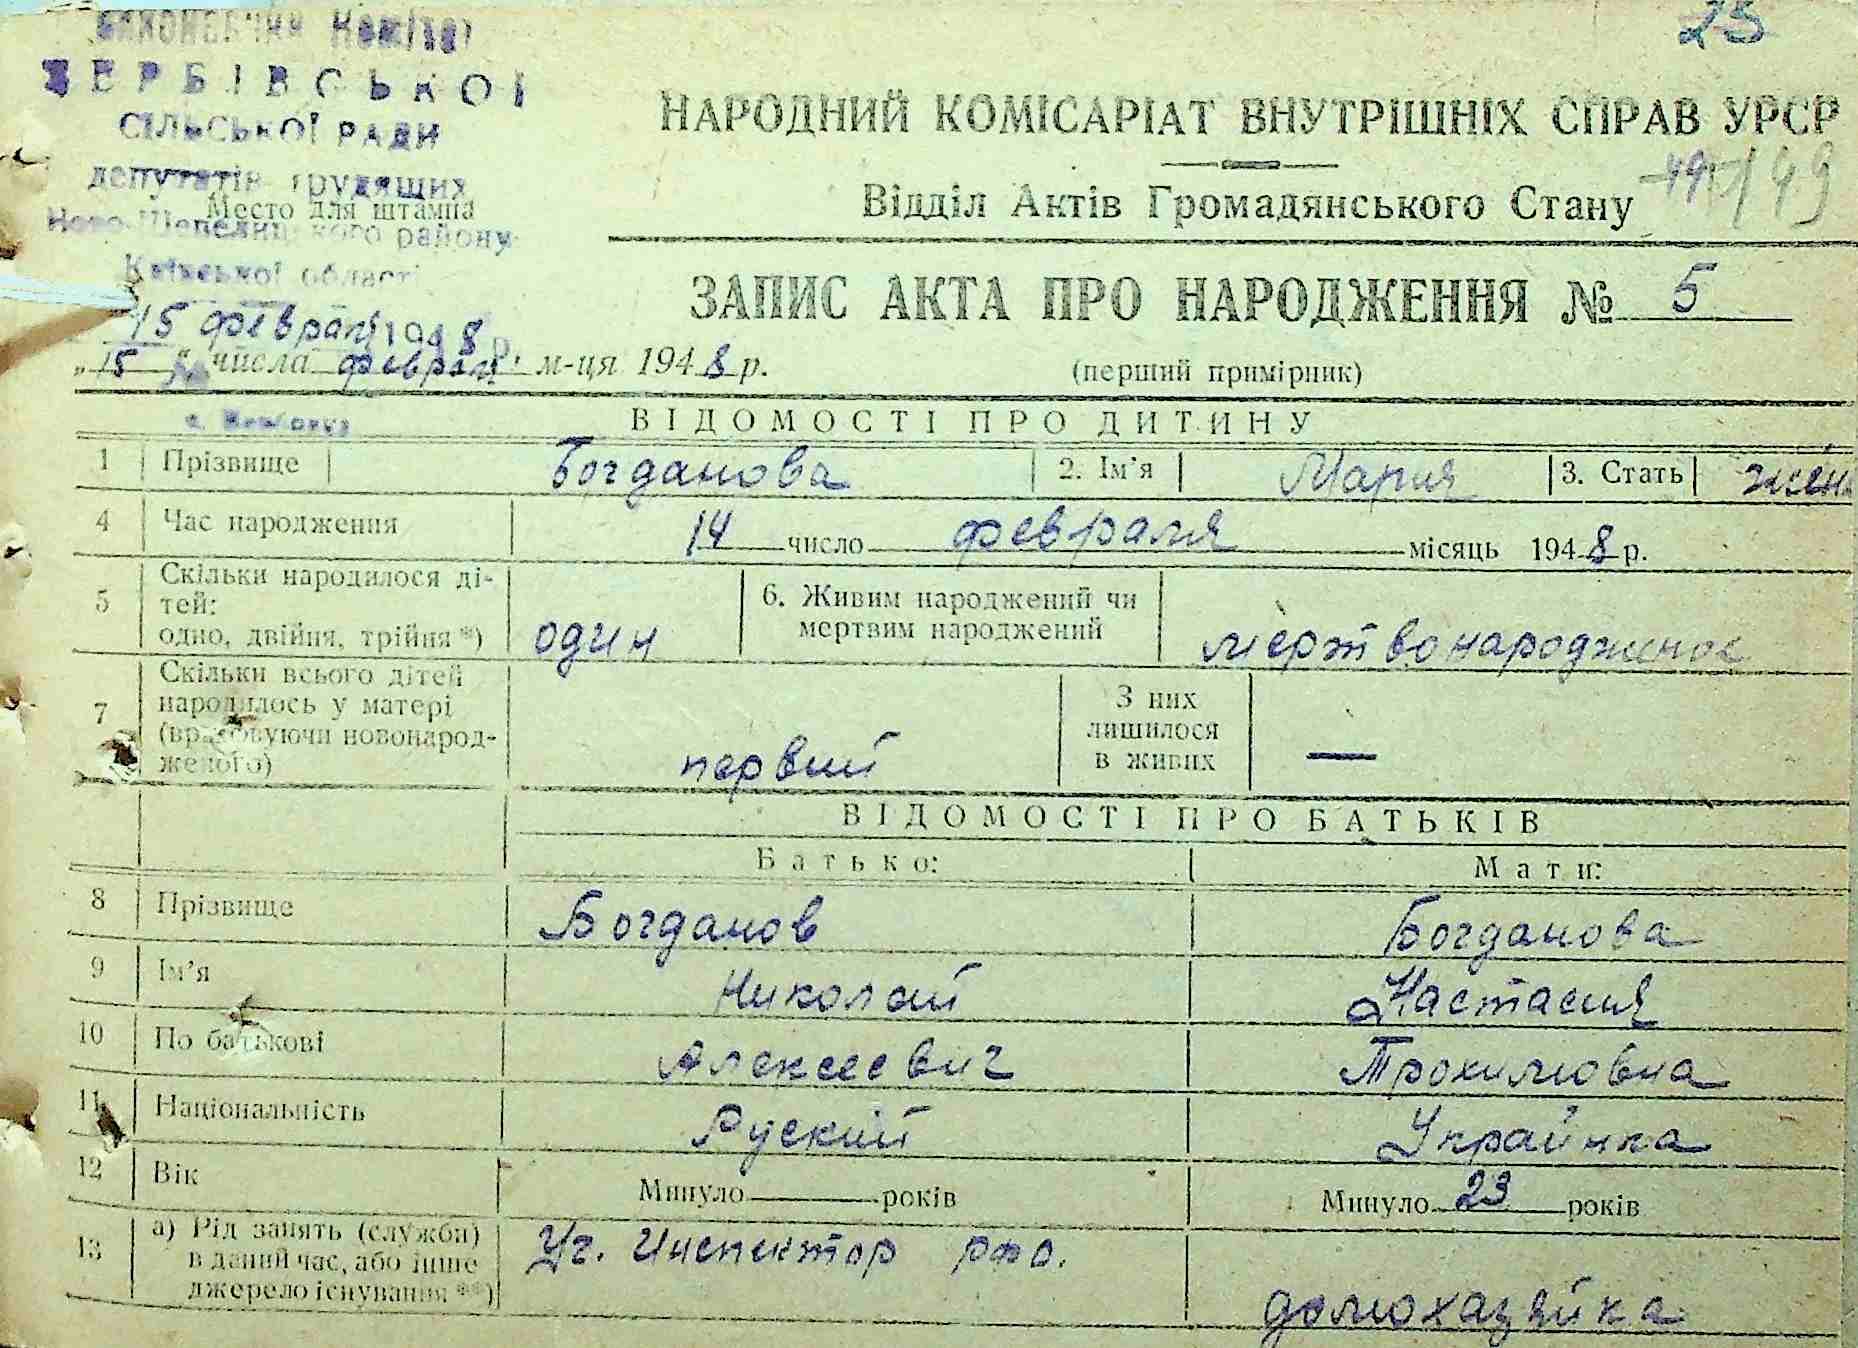 Виконавчий Комітет
ВЕРБІВСЬКОЇ
СІЛЬСЬКОЇ РАДИ
депутатів трудящих
Место для штампа
Ново-Шепелицького району
Київської області
15 феврал 1948 р.
23
НАРОДНИЙ КОМІСАРІАТ ВНУТРІШНІХ СПРАВ УРСР
Відділ Актів Громадянського Стану
49
ЗАПИС АКТА ПРО НАРОДЖЕННЯ № 5
„15“ числа феврал м-ця 1948 р.
(перший примірник)
ВІДОМОСТІ ПРО ДИТИНУ
1 Прізвище Богданова 2. Ім’я Мария 3. Стать жен
4 Час народження 14 число февраля місяць 1948 р.
5 Скільки народилося ді-
тей:
одно, двійня, трійня *) один
6. Живим народжений чи
мертвим народжений мертвонародженое
7 Скільки всього дітей
народилось у матері
(враховуючи новонарод-
женого) первий
З них
лишилося
в живих —
ВІДОМОСТІ ПРО БАТЬКІВ
Батько: Мати:
8 Прізвище Богданов Богданова
9 Ім’я Николай Настасия
10 По батькові Алексеевич Трохимовна
11 Національність Руский Украйнка
12 Вік Минуло років Минуло 23 років
13 а) Рід занять (служби)
в даний час, або інше
джерело існування **) Уч. Инспектор РФО. домохазяйка